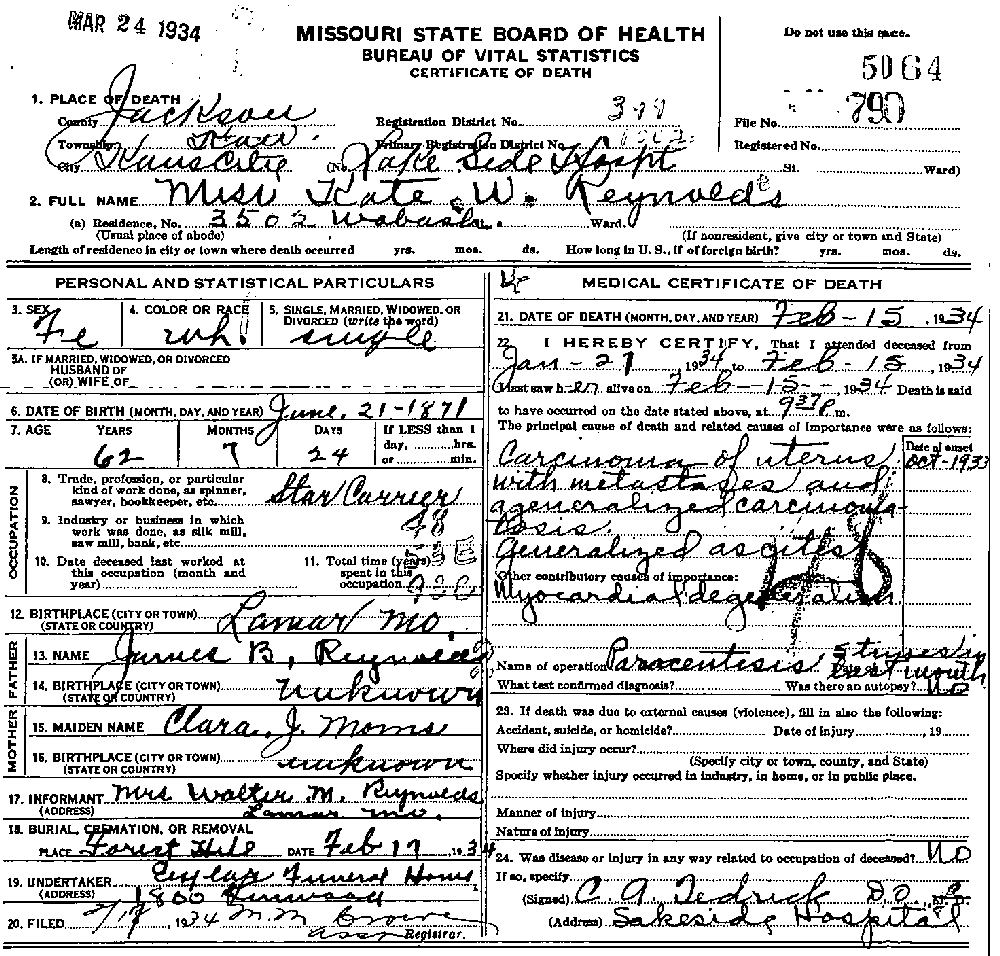 MAR 24 1934
MISSOURI STATE BOARD OF HEALTH
BUREAU OF VITAL STATISTICS
CERTIFICATE OF DEATH
Do not use this space.
5064
790
1. PLACE OF DEATH
County Jackson Registration District No. File No.
Township Kaw Primary Registration District No. Registered No.
City Kans City (No. Lake Side Hospt St. Ward)
2. FULL NAME Miss Kate W. Reynolds
(a) Residence, No. 3502 Wabash St., Ward.
(Usual place of abode) (If nonresident, give city or town and State)
Length of residence in city or town where death occurred yrs. mos. ds. How long in U. S., if of foreign birth? yrs. mos. ds.
PERSONAL AND STATISTICAL PARTICULARS
3. SEX Fe 4. COLOR OR RACE wh. 5. SINGLE, MARRIED, WIDOWED, OR DIVORCED (write the word) single
3A. IF MARRIED, WIDOWED, OR DIVORCED
HUSBAND OF
(OR) WIFE OF
6. DATE OF BIRTH (MONTH, DAY, AND YEAR) June. 21-1871
7. AGE YEARS MONTHS DAYS If LESS than 1
day, hrs.
or min.
62 7 24
OCCUPATION
8. Trade, profession, or particular
kind of work done, as spinner,
sawyer, bookkeeper, etc. Star Carrier
9. Industry or business in which
work was done, as silk mill,
saw mill, bank, etc.
10. Date deceased last worked at
this occupation (month and
year)
11. Total time (years)
spent in this
occupation
12. BIRTHPLACE (CITY OR TOWN) Lamar Mo.
(STATE OR COUNTRY)
FATHER
13. NAME James B. Reynolds
14. BIRTHPLACE (CITY OR TOWN) unknown
(STATE OR COUNTRY)
MOTHER
15. MAIDEN NAME Clara. J.
16. BIRTHPLACE (CITY OR TOWN) unknown
(STATE OR COUNTRY)
17. INFORMANT Mrs Walter M. Reynolds
(ADDRESS) Lamar Mo.
18. BURIAL, CREMATION, OR REMOVAL
PLACE Forest Hill DATE Feb 17, 1934
19. UNDERTAKER Funeral Home
(ADDRESS) 1800
20. FILED 2/17, 1934 M. M.
Asst Registrar.
MEDICAL CERTIFICATE OF DEATH
21. DATE OF DEATH (MONTH, DAY, AND YEAR) Feb-15, 1934
22. I HEREBY CERTIFY, That I attended deceased from
Jan-27, 1934 to Feb-15, 1934
I last saw her alive on Feb-15-, 1934 Death is said
to have occurred on the date stated above, at 937P m.
The principal cause of death and related causes of importance were as follows:
Date of onset
Carcinoma of uterus Oct-1933
with metastases and
a generalized carcinoma-
tosis.
Generalized ascites
Other contributory causes of importance:
Myocardial degeneration
Name of operation Paracentesis 5 times in
last month
What test confirmed diagnosis? Was there an autopsy? No
23. If death was due to external causes (violence), fill in also the following:
Accident, suicide, or homicide? Date of injury , 19
Where did injury occur?
(Specify city or town, county, and State)
Specify whether injury occurred in industry, in home, or in public place.
Manner of injury
Nature of injury
24. Was disease or injury in any way related to occupation of deceased? No
If so, specify
(Signed) C. A. Tedrick D.O.
(Address) Lakeside Hospital